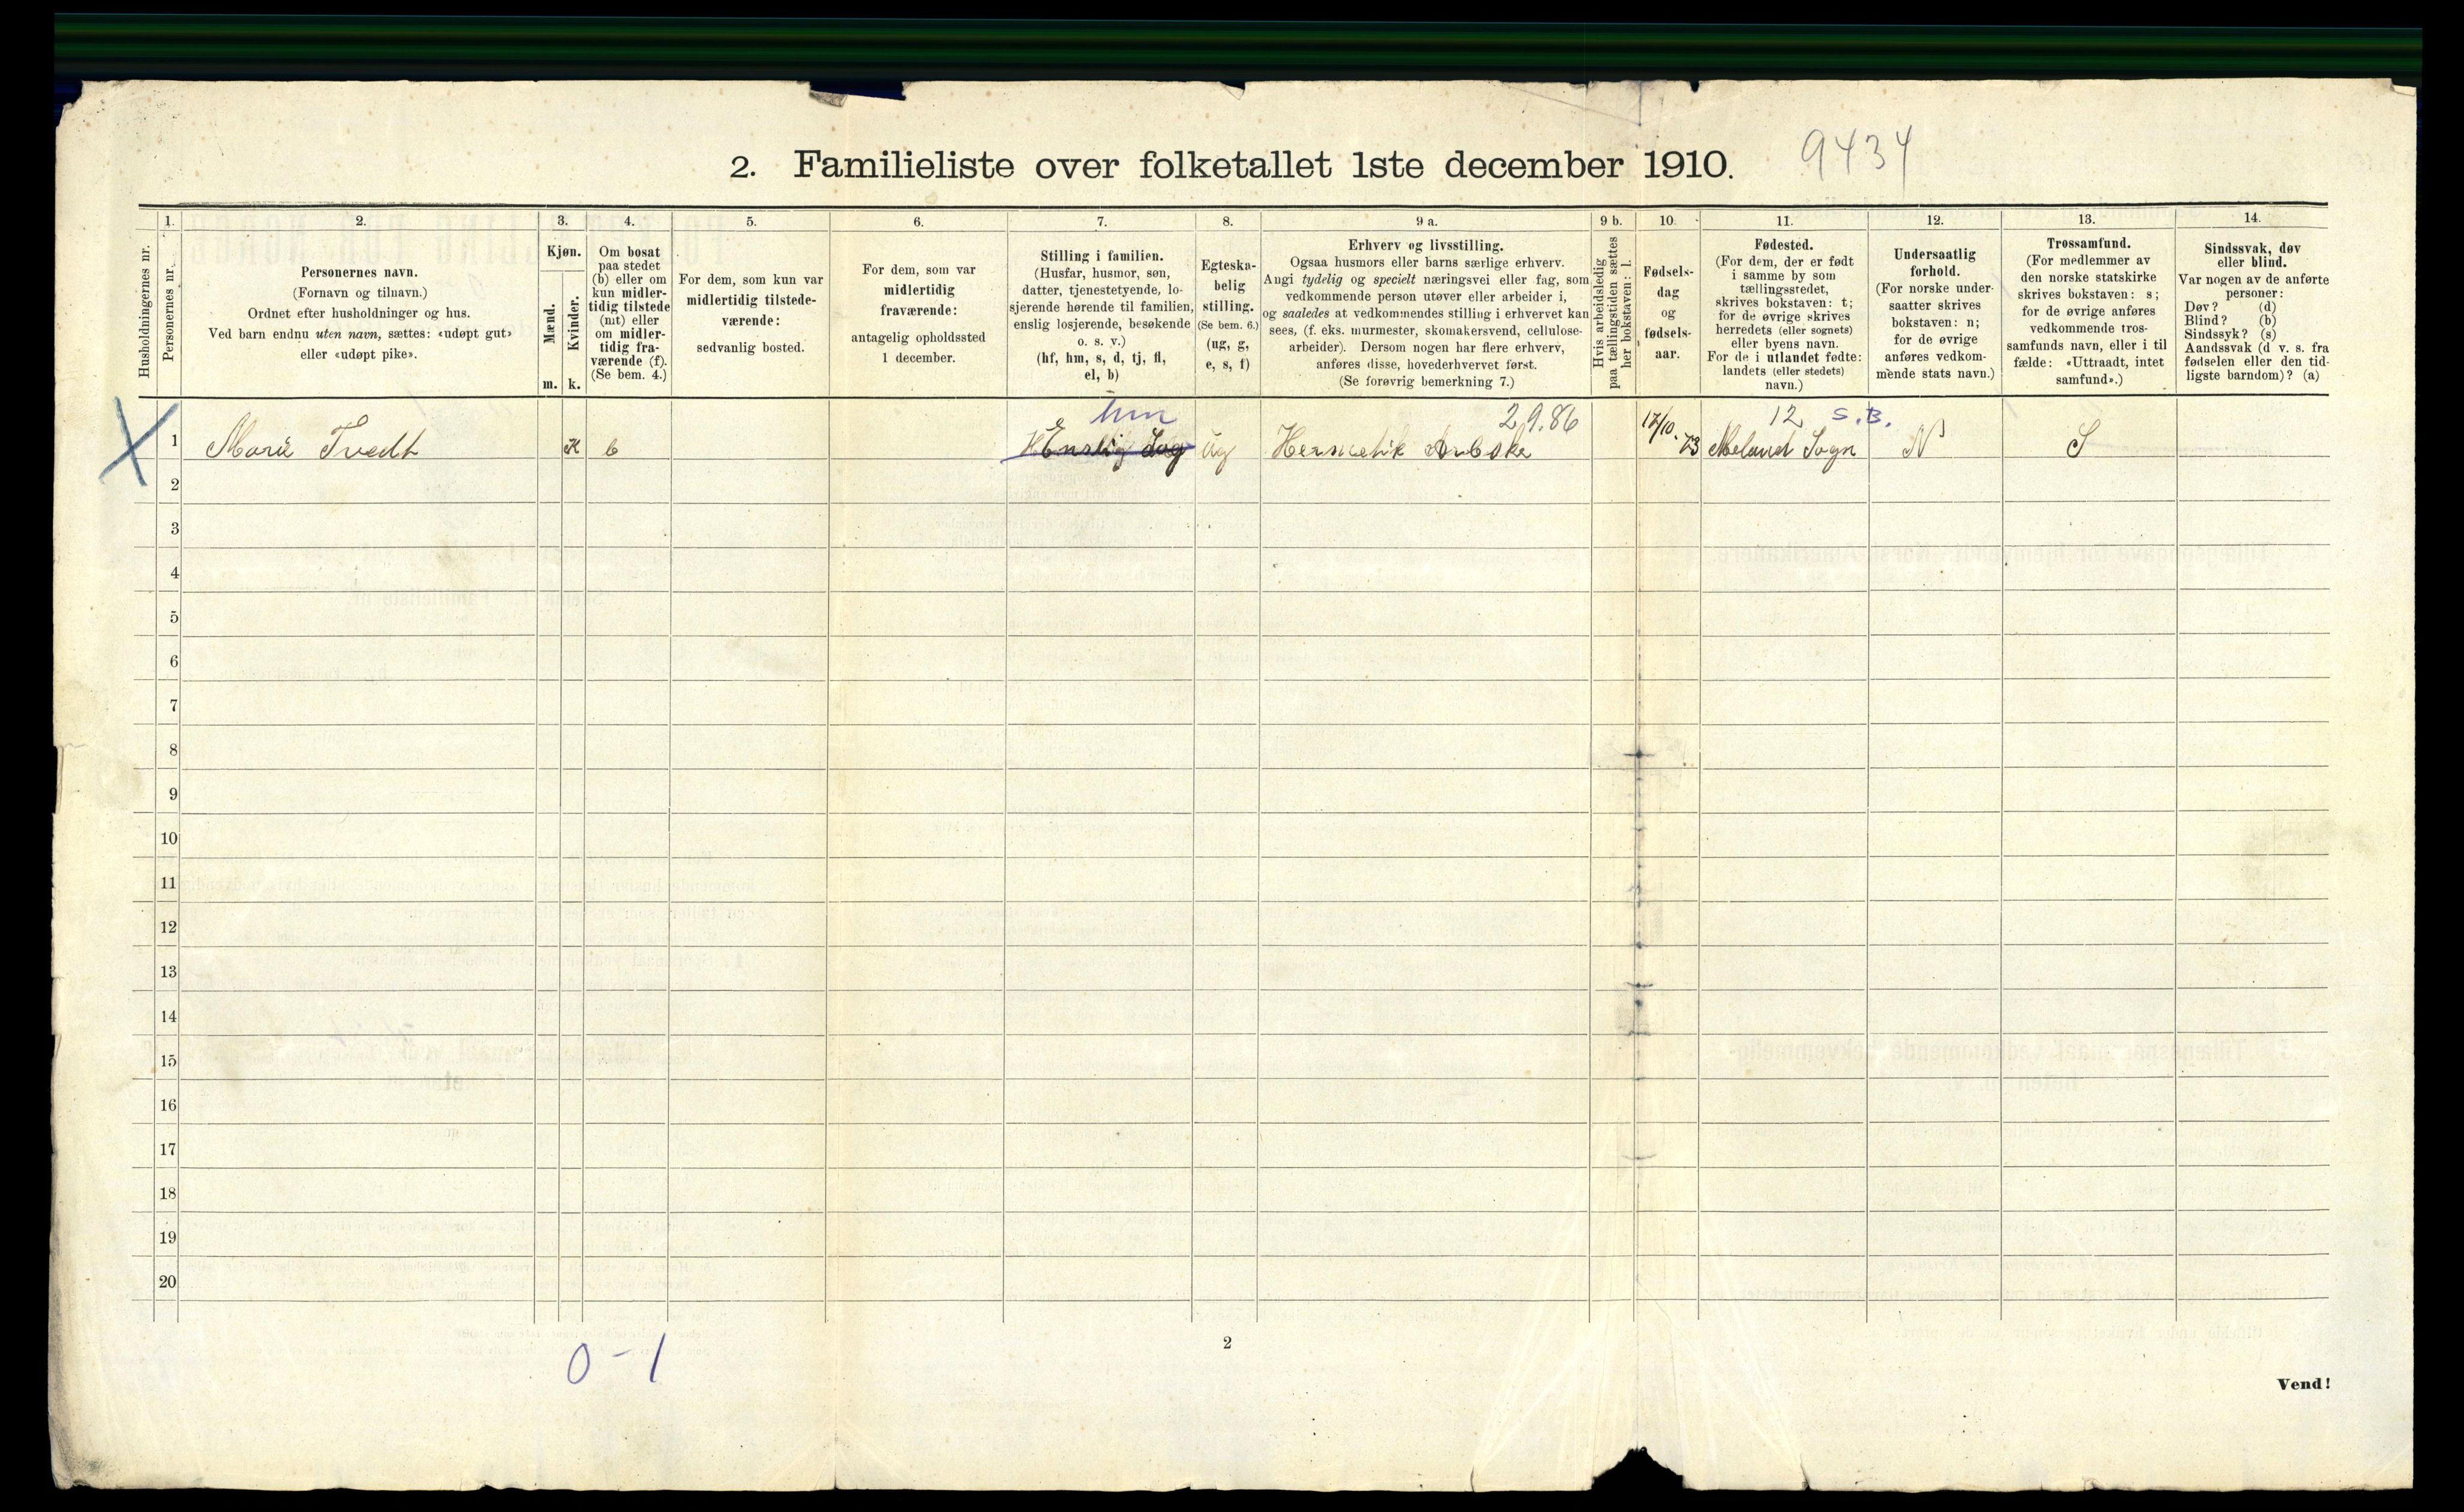 2. Familieliste over folketallet 1ste december 1910.
9434
Husholdningernes nr.
1.
Personernes nr.
2.
Personernes navn.
(Fornavn og tilnavn.)
Ordnet efter husholdninger og hus.
Ved barn endnu uten navn, sættes: «udøpt gut»
eller «udøpt pike».
3.
Kjøn.
Mænd.
Kvinder.
m. k.
4.
Om bosat
paa stedet
(b) eller om
kun midler-
tidig tilstede
(mt) eller
om midler-
tidig fra-
værende (f).
(Se bem. 4.)
5.
For dem, som kun var
midlertidig tilstede-
værende:
sedvanlig bosted.
6.
For dem, som var
midlertidig
fraværende:
antagelig opholdssted
1 december.
7.
Stilling i familien.
(Husfar, husmor, søn,
datter, tjenestetyende, lo-
sjerende hørende til familien,
enslig losjerende, besøkende
o. s. v.)
(hf, hm, s, d, tj, fl,
el, b)
8.
Egteska-
belig
stilling.
(Se bem. 6.)
(ug, g,
e, s, f)
9 a.
Erhverv og livsstilling.
Ogsaa husmors eller barns særlige erhverv.
Angi tydelig og specielt næringsvei eller fag, som
vedkommende person utøver eller arbeider i,
og saaledes at vedkommendes stilling i erhvervet kan
sees, (f. eks. murmester, skomakersvend, cellulose-
arbeider). Dersom nogen har flere erhverv,
anføres disse, hovederhvervet først.
(Se forøvrig bemerkning 7.)
9 b.
Hvis arbeidsledig
paa tællingstiden sættes
her bokstaven: l.
10.
Fødsels-
dag
og
fødsels-
aar.
11.
Fødested.
(For dem, der er født
i samme by som
tællingsstedet,
skrives bokstaven: t;
for de øvrige skrives
herredets (eller sognets)
eller byens navn.
For de i utlandet fødte:
landets (eller stedets)
navn.)
12.
Undersaatlig
forhold.
(For norske under-
saatter skrives
bokstaven: n;
for de øvrige
anføres vedkom-
mende stats navn.)
13.
Trossamfund.
(For medlemmer av
den norske statskirke
skrives bokstaven: s;
for de øvrige anføres
vedkommende tros-
samfunds navn, eller i til
fælde: «Uttraadt, intet
samfund».)
14.
Sindssvak, døv
eller blind.
Var nogen av de anførte
personer:
Døv? (d)
Blind? (b)
Sindssyk? (s)
Aandssvak (d v. s. fra
fødselen eller den tid-
ligste barndom)? (a)
hm 29.86 12 S.B.
1 Marie Tvedt K b Enslig Log ug Hermetik Arbske 17/10. 73 Meland Sogn N S
2
3
4
5
6
7
8
9
10
11
12
13
14
15
16
17
18
19
20
0-1
2
Vend!